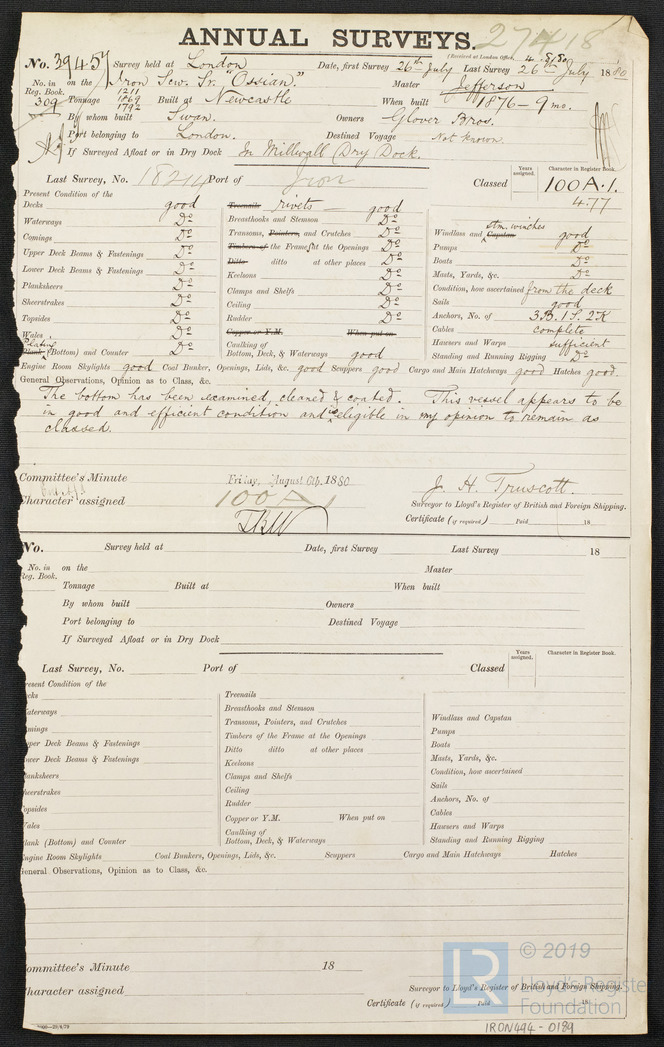 ANNUAL SURVEYS. 27418
(Received at London Office, 4. 8/80
No. 39457 Survey held at London Date, first Survey 26th July Last Survey 26th July 1880
No. in on the Iron Scw. Sr. "Ossian." Master Jefferson
Reg. Book. 1211
309 Tonnage 1869 Built at Newcastle When built 1876 - 9 mo.
1792
By whom built Swan. Owners Glover Bros.
Port belonging to London. Destined Voyage Not known.
If Surveyed Afloat or in Dry Dock In Millwall Dry Dock.
Last Survey, No. 18214 Port of Iron Classed Years assigned. Character in Register Book. 100 A. 1.
4.77
Present Condition of the
Decks good
Waterways Do
Comings Do
Upper Deck Beams & Fastenings Do
Lower Deck Beams & Fastenings Do
Planksheers Do
Sheerstrakes Do
Topsides Do
Wales Do
Plating
Plank (Bottom) and Counter Do
Treenails rivets good
Breasthooks and Stemson Do
Transoms, Pointers, and Crutches Do
Timbers of the Frame at the Openings Do
Ditto ditto at other places Do
Keelsons Do
Clamps and Shelfs Do
Ceiling Do
Rudder Do
Copper or Y.M. When put on
Caulking of
Bottom, Deck, & Waterways good
stm. winches
Windlass and Capstan good
Pumps Do
Boats Do
Masts, Yards, &c. Do
Condition, how ascertained from the deck
Sails good
Anchors, No. of 3B. 1S. 2K
Cables complete
Hawsers and Warps sufficient
Standing and Running Rigging Do
Engine Room Skylights good Coal Bunker, Openings, Lids, &c. good Scuppers good Cargo and Main Hatchways good Hatches good.
General Observations, Opinion as to Class, &c.
The bottom has been examined, cleaned & coated. This vessel appears to be
in good and efficient condition and is eligible in my opinion to remain as
classed.
Committee's Minute Friday, August 6th, 1880
Character assigned 100 A 1
J. H. Truscott.
Surveyor to Lloyd's Register of British and Foreign Shipping.
Certificate (if required) Paid 18
No. Survey held at Date, first Survey Last Survey 18
No. in on the Master
Reg. Book.
Tonnage Built at When built
By whom built Owners
Port belonging to Destined Voyage
If Surveyed Afloat or in Dry Dock
Last Survey, No. Port of Classed Years assigned. Character in Register Book.
resent Condition of the
cks
aterways
mings
pper Deck Beams & Fastenings
ower Deck Beams & Fastenings
anksheers
heerstrakes
opsides
ales
lank (Bottom) and Counter
Treenails
Breasthooks and Stemson
Transoms, Pointers, and Crutches
Timbers of the Frame at the Openings
Ditto ditto at other places
Keelsons
Clamps and Shelfs
Ceiling
Rudder
Copper or Y.M. When put on
Caulking of
Bottom, Deck, & Waterways
Windlass and Capstan
Pumps
Boats
Masts, Yards, &c.
Condition, how ascertained
Sails
Anchors, No. of
Cables
Hawsers and Warps
Standing and Running Rigging
ngine Room Skylights Coal Bunkers, Openings, Lids, &c. Scuppers Cargo and Main Hatchways Hatches
eneral Observations, Opinion as to Class, &c.
ommittee's Minute 18
haracter assigned
Surveyor to Lloyd's Register of British and Foreign Shipping.
Certificate (if required) Paid 18
LR © 2019
Lloyd's Register
Foundation
IRON494-0189